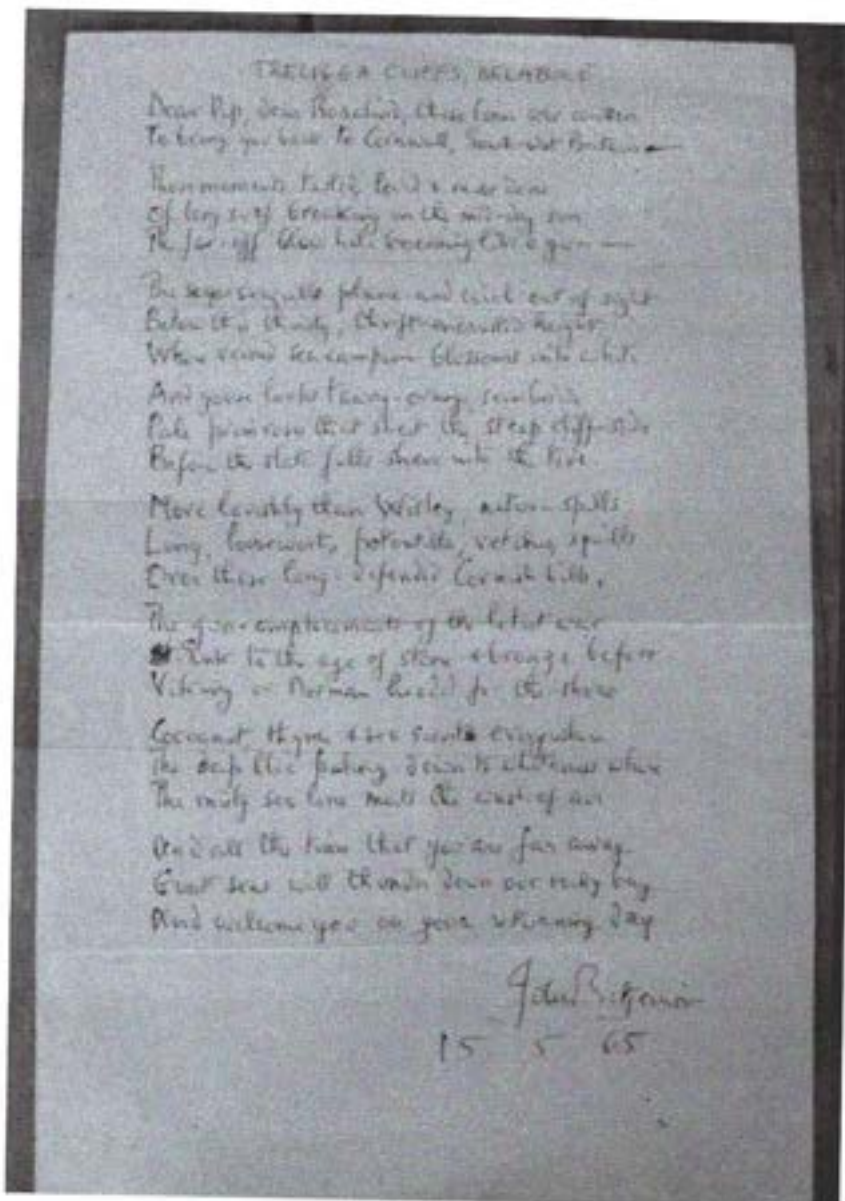 TRELIGGA CLIFFS, DELABOLE
Dear Pip, dear Rosalind, these lines are written
To bring you back to Cornwall, South West Britain —
of long surf breaking in the
The far-off blow hole booming like a gun —
plane and wind out of sight
Below this thrift-encrusted height
When sea campion blossoms into white
And yellow
Pale primroses that the steep cliff-side
Before the slate falls sheer into the tide.
More lavishly than Wisley, nature spills
Ling, lousewort, potentilla, vetches, squills
Over these long-defended Cornish hills,
The gun-emplacements of the latest war
to the age of stone & bronze before
Viking or Norman for the shore
Coconut, thyme & sea scents everywhere
The deep blue fading down to whiteness where
The misty sea line meets the wash of air
And all the time that you are far away
Great seas will thunder down our rocky bay
And welcome you on your returning day
John Betjeman
15 5 65